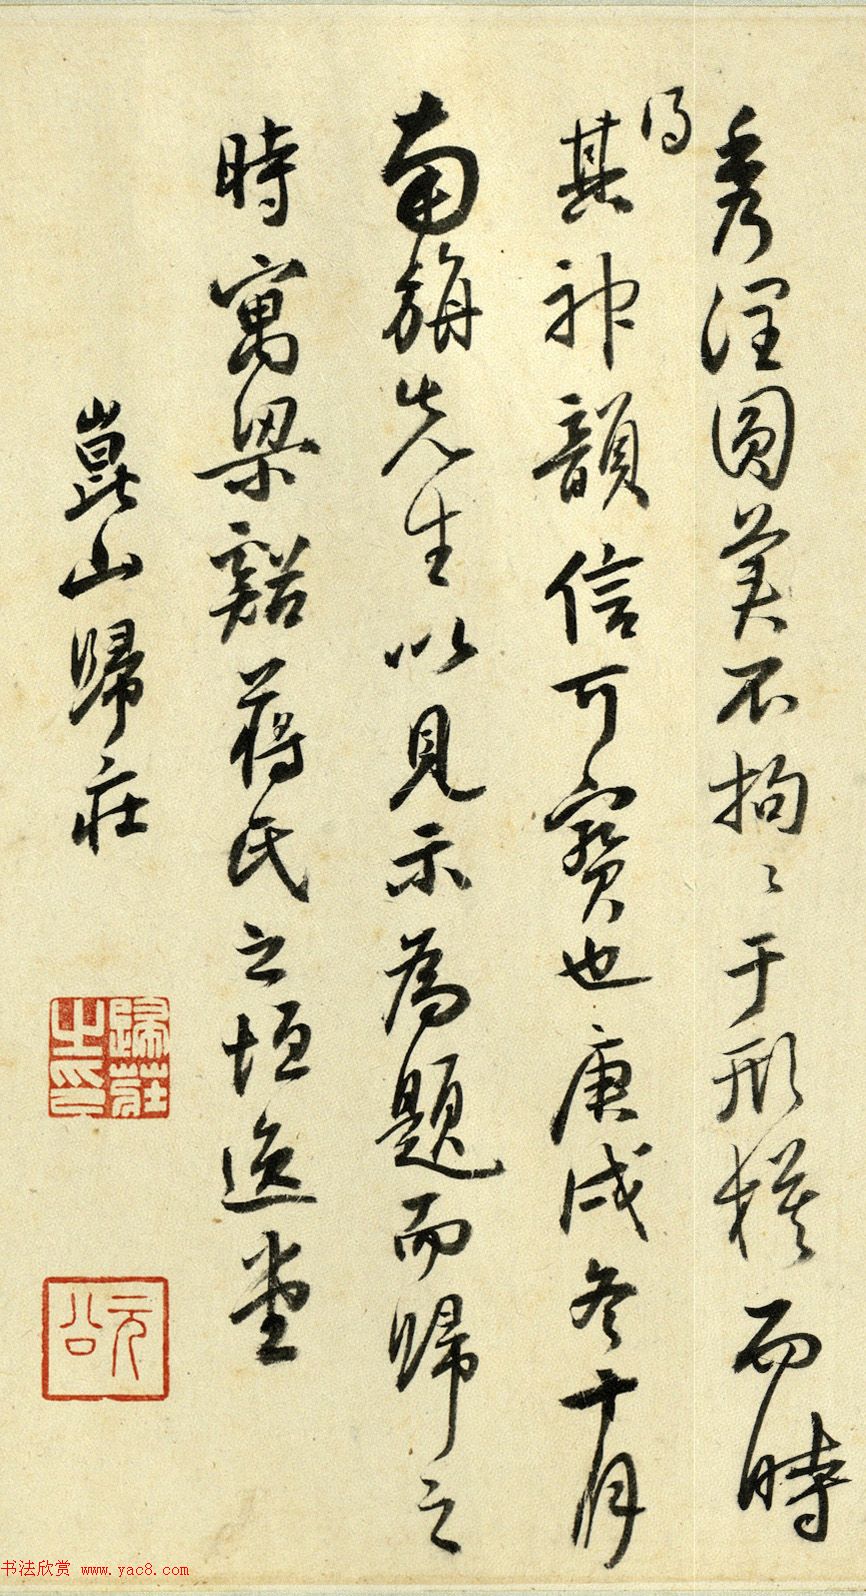 秀潤圓美不拘〻于形模而時
得
其神韻信可寶也庚戌冬十月
南旃先生以見示為題而歸之
時寓梁谿蔣氏之垣逸堂
崑山歸莊
歸莊之印
元公
书法欣赏 www.yac8.com